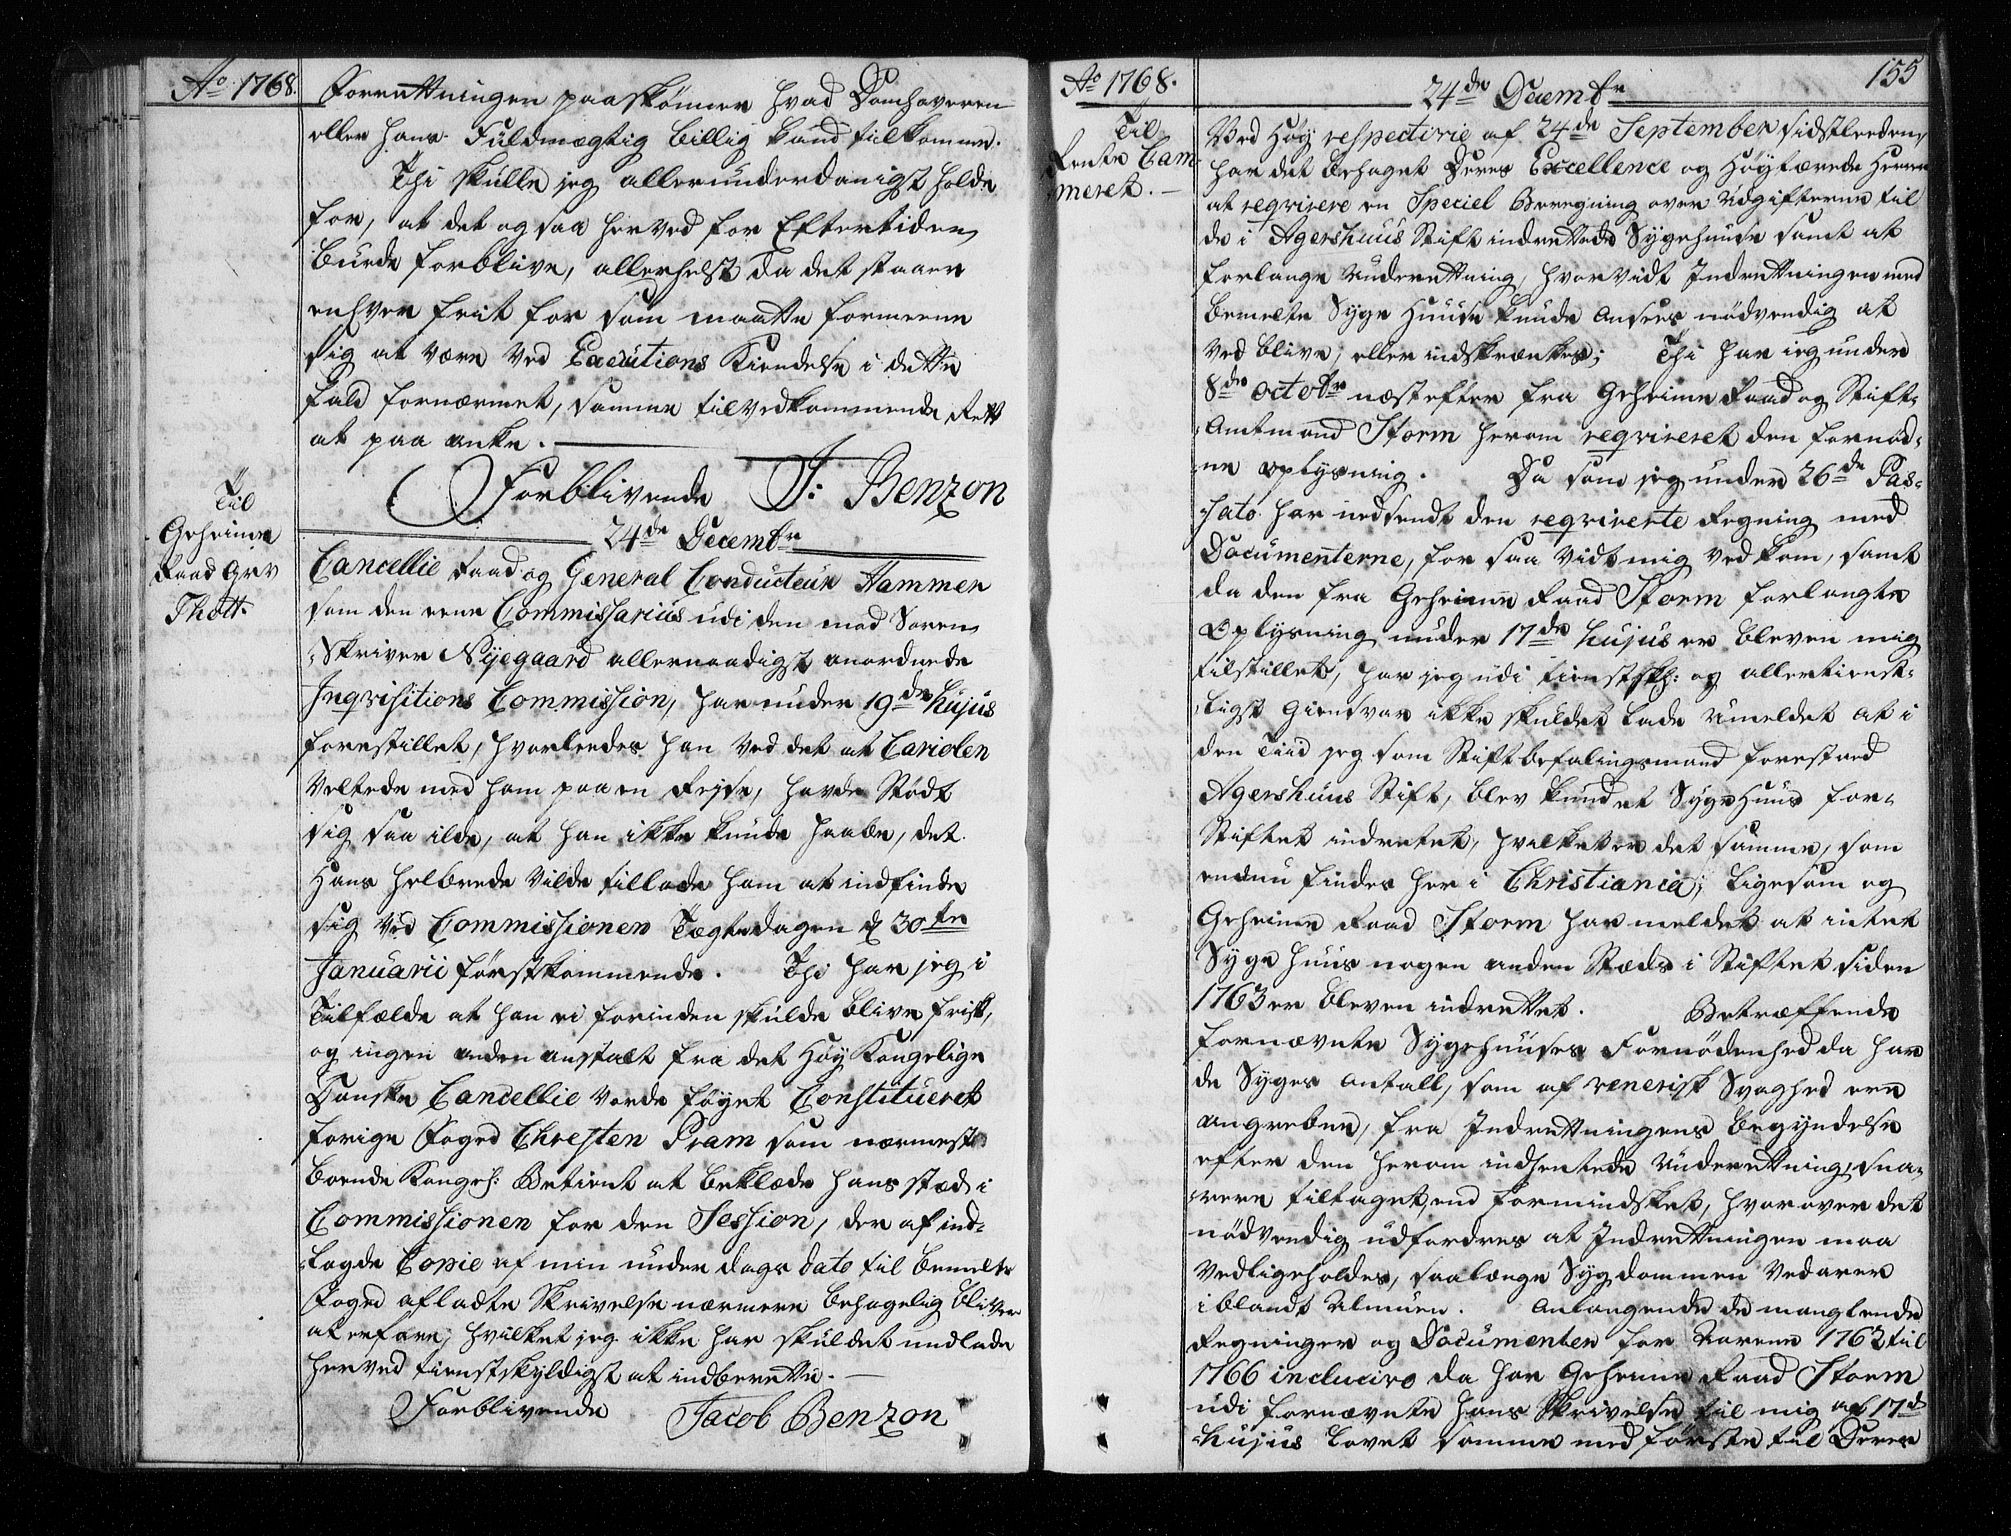 Ao 1768.
Forretningen paaskiønner hvad Domhaveren
eller hans Fuldmægtig billig kand tilkomme.
Thi skulle jeg allerunderdanigst holde
for, at det ogsaa herved for Eftertiden
burde forblive, allerhelst da det staaer
enhver friit for som maatte formeene
sig at være ved Executions Kiendelse i dette
fald fornærmet, samme til vedkommende Rett
at paa anke.
Forblivende J: Benzon
24de Decembr
Til
Geheime
Raad Grv
Thott.
Cancellie Raad og General Conducteur Hammer
som den eene Commissarius udi den mod Soren-
skriver Nyegaard allernaadigst anordnede
Inqvisitions Commission, har under 19de hujus
forestillet, hvorledes han ved det at Cariolen
veltede med ham paa en Rejse, havde stødt
sig saa ilde, at han ikke kunde haabe, det
hans helbrede vilde tillade ham at indfinde
sig ved Commissionen Tægtedagen d 30te
Januarii førstkommende. Thi har jeg i
Tilfælde at han ei forinden skulde blive frisk,
og ingen anden anstalt fra det Høy Kongelige
Danske Cancellie vorde føyet Constitueret
forige Foged Chresten Pram som nærmest
boende Kongel: Betient at beklæde hans stæd i
Commissionen for den Session, der af ind-
lagde Copie af min under dags dato til bemelte
Foged afladte Skrivelse nærmere behagelig bliver
at erfare; hvilket jeg ikke har skuldet undlade
herved tienstskyldigst at indberette.
Forblivende Jacob Benzon
Ao 1768.
24de Decembr
155
Til
Rente Cam
meret.
Ved høy respective af 24de September sidstleeden
har det behaget Deres Excellence og Høytærede Herrer
at reqvirere en Speciel Beregning over Udgifterne til
de i Agershuus Stift indrettede Sygehuuse samt at
forlange Underretning, hvorvidt Indretningen med
bemelte Syge Huuse kunde ansees nødvendig at
ved blive, eller indskrænkes; Thi har jeg under
8de octobr næstefter fra Geheime Raad og Stift-
Amtmand Storm herom reqvireret den fornød-
ne oplysning. Da som jeg under 26de Pas-
sato har nedsendt den reqvirerte Regning med
Documenterne, for saa vidt mig vedkom, samt
da den fra Geheime Raad Storm forlangte
Oplysning under 17de hujus er bleven mig
tilstillet, har jeg udi tienstskl: og allertienst-
ligst Giensvar ikke skuldet lade umeldet at i
den Tiid jeg som Stiftbefalingsmand forestoed
Agershuus Stift, blev kun det Syge Huus for
Stiftet indrettet, hvilket er det samme, som
endnu findes her i Christiania; ligesom og
Geheime Raad Storm har meldet at intet
Syge huus nogen anden Stæds i Stiftet siden
1763 er bleven indrettet. Betræffende
fornævnte Sygehuuses Fornødenhed da har
de Syges Antall, som af venerisk Svaghed ere
angrebne, fra Indretningens Begyndelse
efter den herom indhentede Underretning, sna-
rere tiltaget, end formindsket, hvorover det
nødvendig udfordres at Indretningen maa
vedligeholdes, saalænge Sygdommen vedvarer
iblandt Almuen. Anlangende de manglende
Regninger og Documenter for Aarene 1762 til
1766 inclusive da har Geheime Raad Storm
udi fornævnte hans Skrivelse til mig af 17de
hujus lovet samme med første til Deres